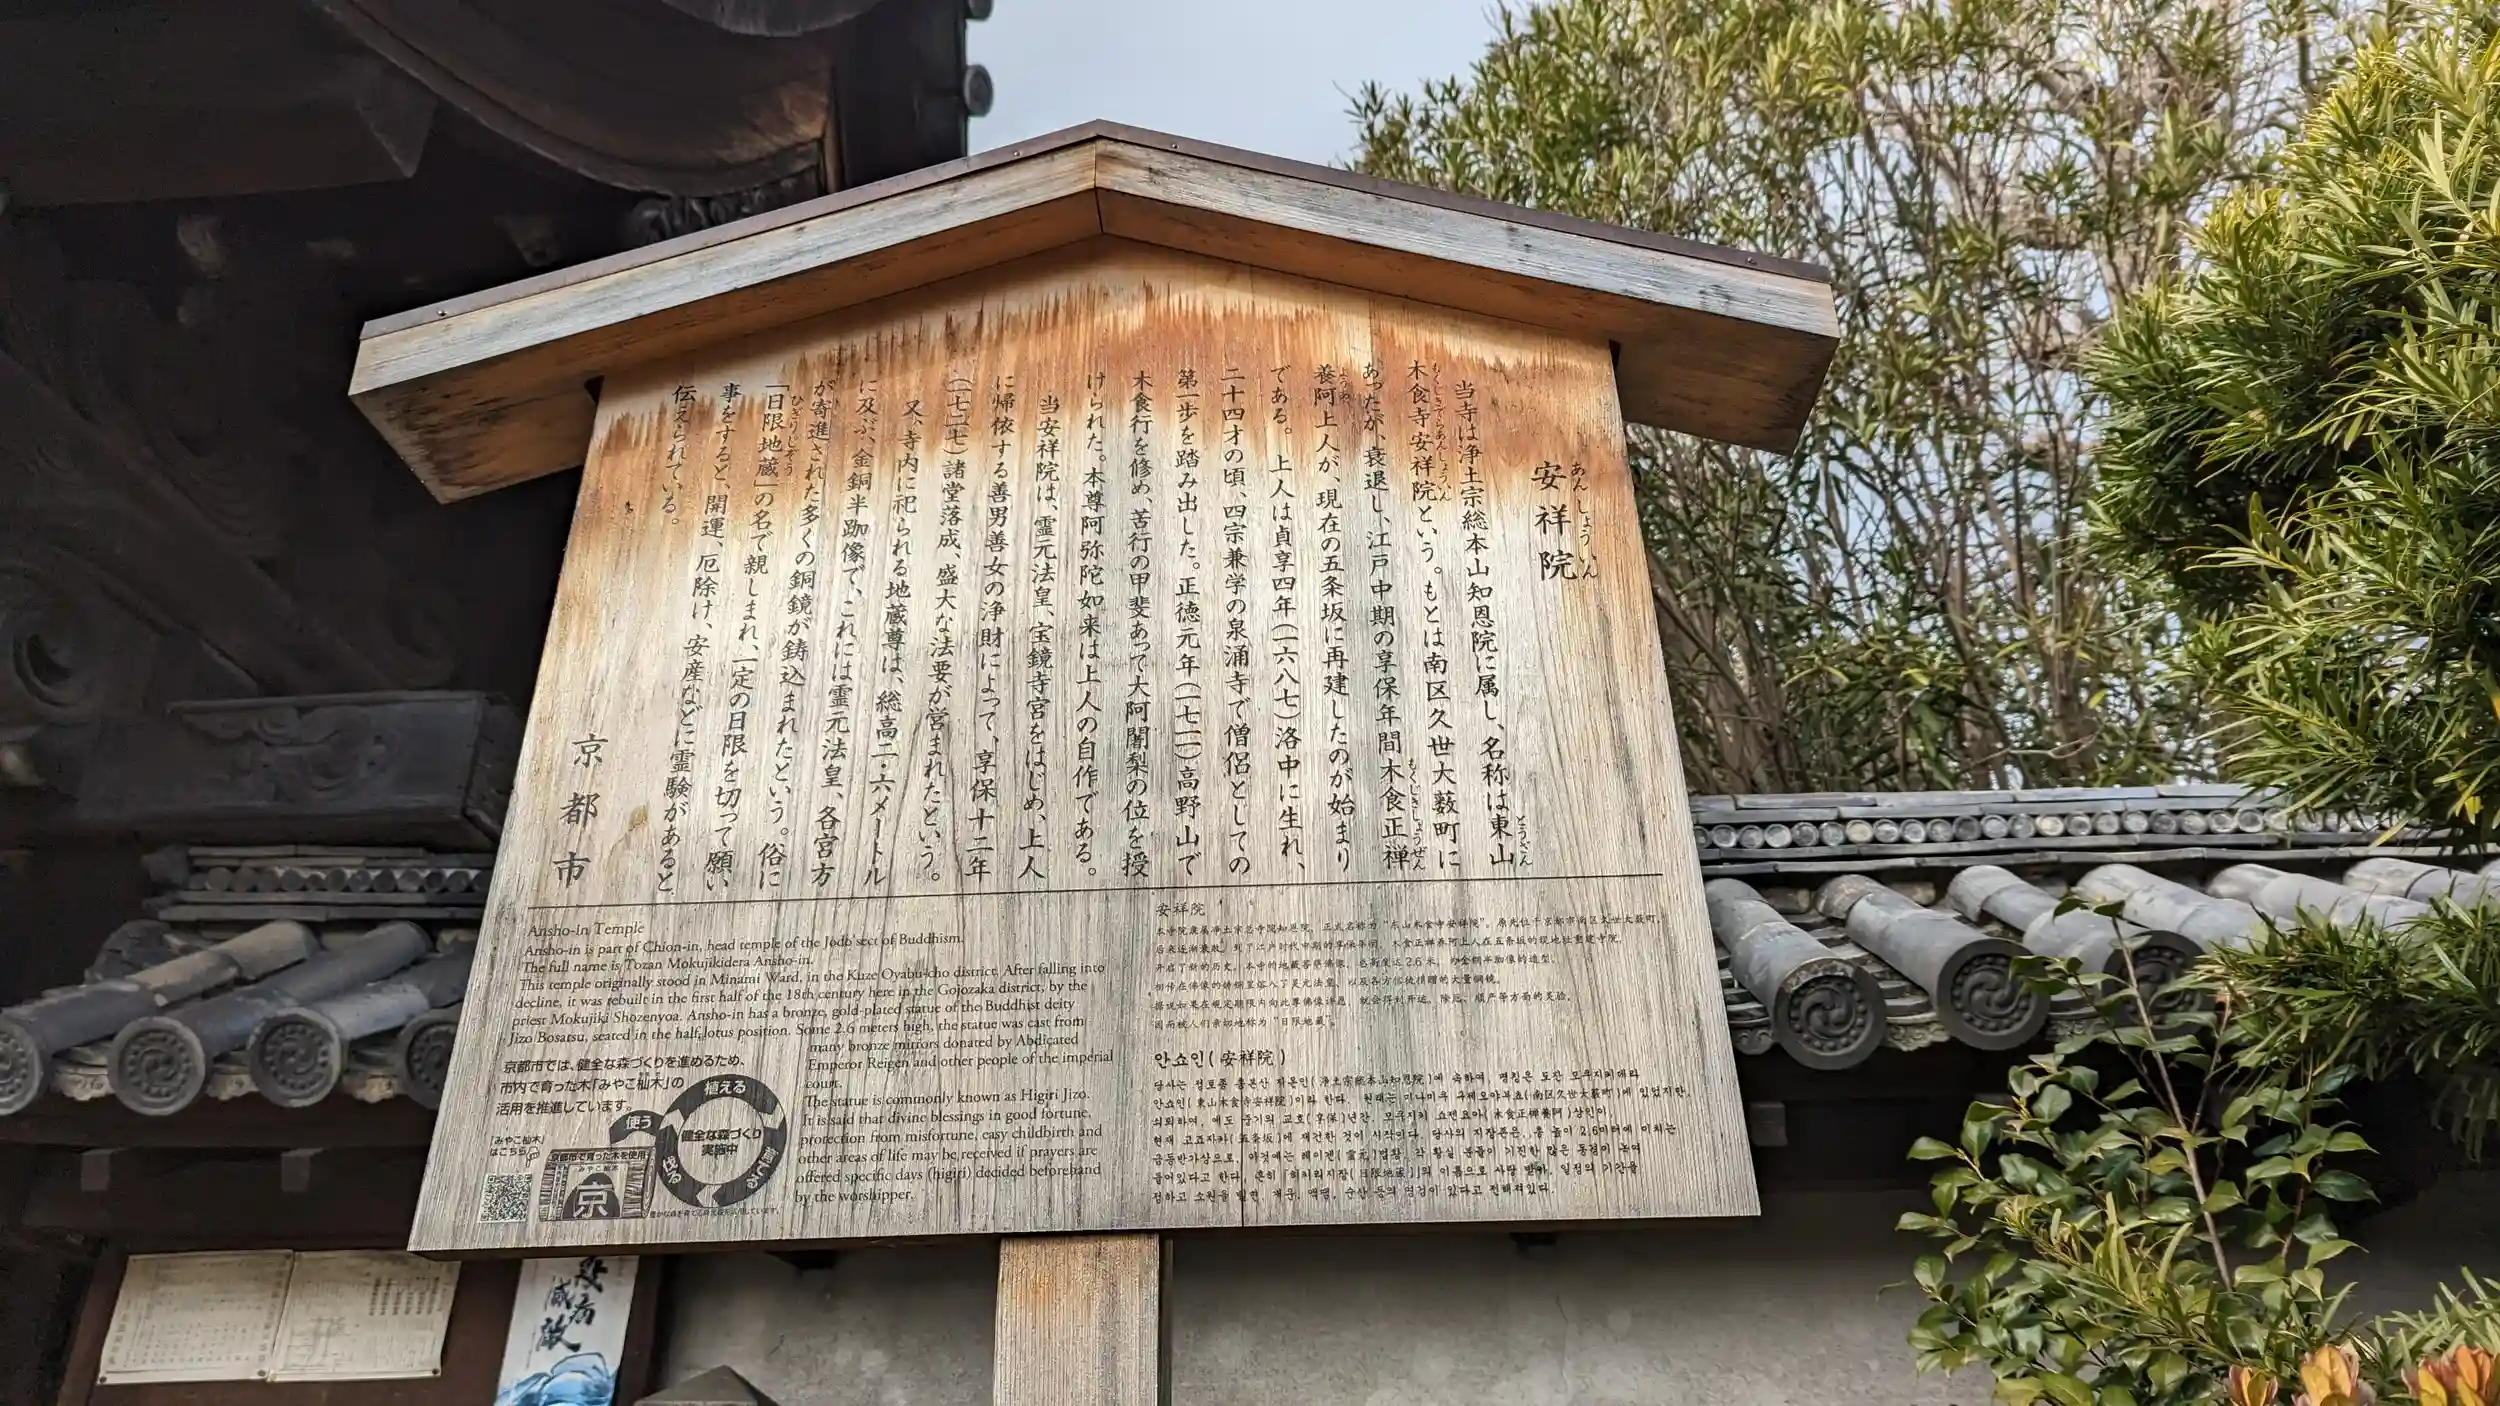 安祥院
あんしょういん
当寺は浄土宗総本山知恩院に属し、名称は東山
とうざん
木食寺安祥院という。もとは南区久世大薮町に
もくじきでらあんしょういん
あったが、衰退し、江戸中期の享保年間木食正禅
もくじきしょうぜん
養阿上人が、現在の五条坂に再建したのが始まり
ようあ
である。上人は貞享四年(一六八七)洛中に生れ、
二十四才の頃、四宗兼学の泉涌寺で僧侶としての
第一歩を踏み出した。正徳元年(一七一一)高野山で
木食行を修め、苦行の甲斐あって大阿闍梨の位を授
けられた。本尊阿弥陀如来は上人の自作である。
当安祥院は、霊元法皇、宝鏡寺宮をはじめ、上人
に帰依する善男善女の浄財によって、享保十二年
(一七二七)諸堂落成、盛大な法要が営まれたという。
又、寺内に祀られる地蔵尊は、総高二・六メートル
に及ぶ、金銅半跏像で、これには霊元法皇、各宮方
が寄進された多くの銅鏡が鋳込まれたという。俗に
「日限地蔵」の名で親しまれ、一定の日限を切って願い
ひぎりじぞう
事をすると、開運、厄除け、安産などに霊験があると
伝えられている。
京都市
Ansho-in Temple
Ansho-in is part of Chion-in, head temple of the Jodo sect of Buddhism.
The full name is Tozan Mokujikidera Ansho-in.
This temple originally stood in Minami Ward, in the Kuze Oyabu-cho district. After falling into
decline, it was rebuilt in the first half of the 18th century here in the Gojozaka district, by the
priest Mokujiki Shozenyoa. Ansho-in has a bronze, gold-plated statue of the Buddhist deity
Jizo Bosatsu, seated in the half lotus position. Some 2.6 meters high, the statue was cast from
many bronze mirrors donated by Abdicated
Emperor Reigen and other people of the imperial
court.
The statue is commonly known as Higiri Jizo.
It is said that divine blessings in good fortune,
protection from misfortune, easy childbirth and
other areas of life may be received if prayers are
offered specific days (higiri) decided beforehand
by the worshipper.
京都市では、健全な森づくりを進めるため、
市内で育った木「みやこ杣木」の
活用を推進しています。
「みやこ杣木」
はこちら
京都市で育った木を使用
みやこ杣木
京
使う
植える
育てる
伐る
健全な森づくり
実施中
安祥院
本寺院隶属净土宗总寺院知恩院，正式名称为“东山木食寺安祥院”。原先位于京都市南区久世大薮町，
后来逐渐衰败，到了江户时代中期的享保年间，木食正禅养阿上人在五条坂的现地址重建寺院，
开启了新的历史。本寺的地藏菩萨佛像，总高度达2.6米，为金铜半跏像的造型，
相传在佛像的铸铜里溶入了灵元法皇，以及各方信徒捐赠的大量铜镜。
据说如果在规定期限内向此尊佛像许愿，就会得到开运、除厄、顺产等方面的灵验，
因而被人们亲切地称为“日限地藏”。
안쇼인(安祥院)
당사는 정토종 총본산 지온인(浄土宗総本山知恩院)에 속하며, 명칭은 도잔 모쿠지키데라
안쇼인(東山木食寺安祥院)이라 한다. 원래는 미나미구 구제오야부초(南区久世大薮町)에 있었지만,
쇠퇴하여, 에도 중기의 교호(享保)년간, 모쿠지키 쇼젠요아(木食正禅養阿)상인이,
현재 고죠자카(五条坂)에 재건한 것이 시작이다. 당사의 지장존은, 총 높이 2.6미터에 미치는
금동반가상으로, 이것에는 레이겐(霊元)법황, 각 황실 분들이 기진한 많은 동경이 녹여
들어있다고 한다. 흔히 「히기리지장(日限地蔵)」의 이름으로 사랑 받아, 일정의 기간을
정하고 소원을 빌면, 개운, 액땜, 순산 등의 영험이 있다고 전해져있다.